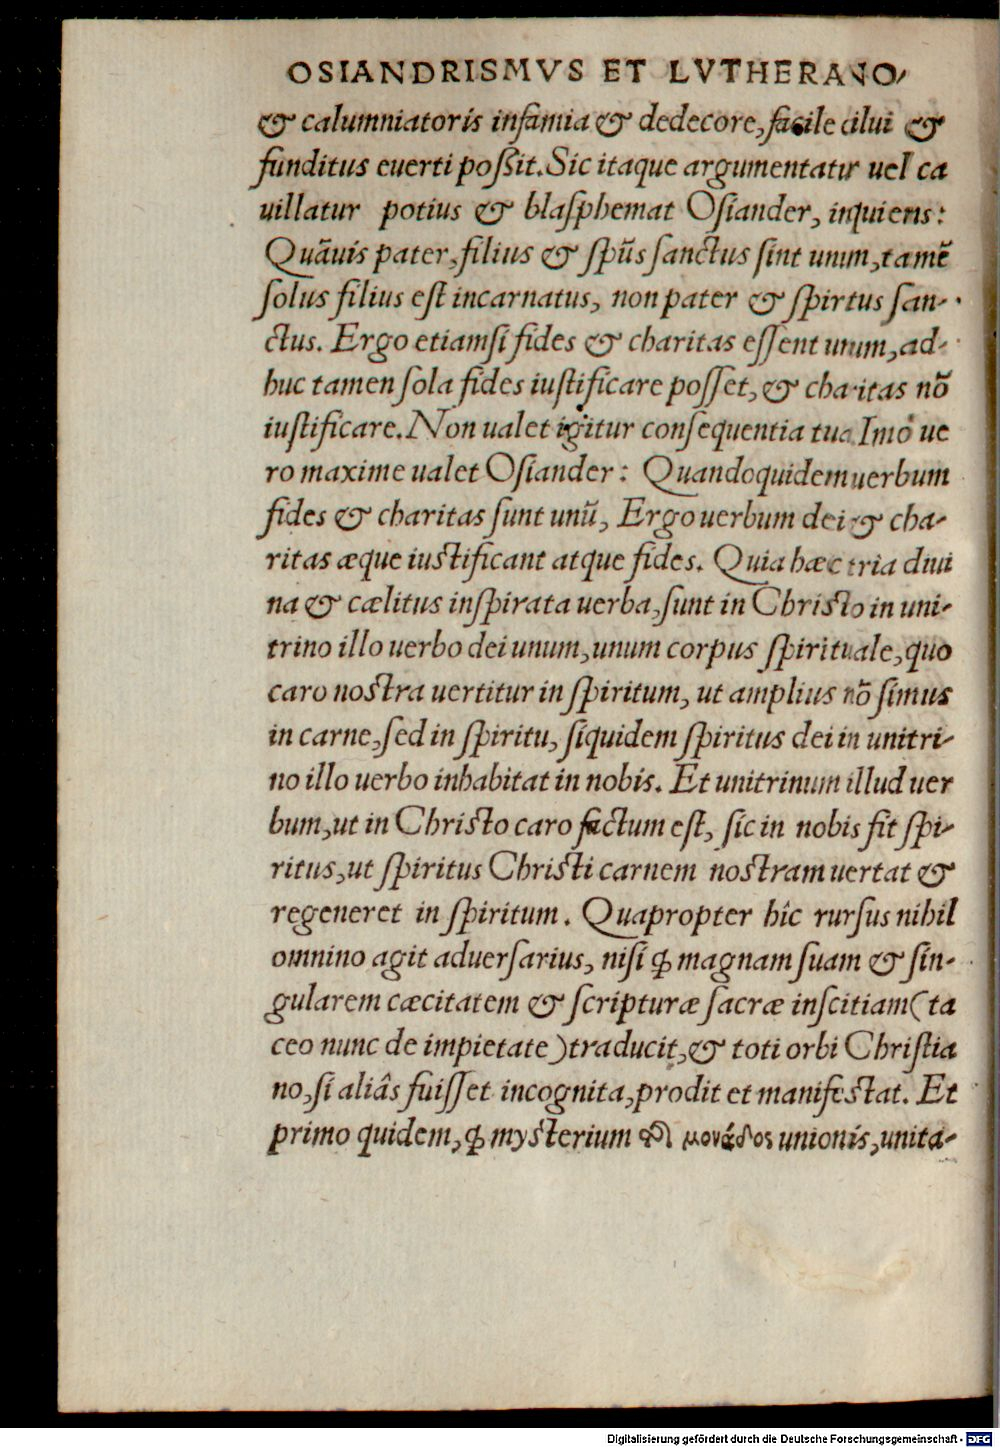 OSIANDRISMVS ET LVTHERANO-
& calumniatoris infamia & dedecore, facile dilui &
funditus euerti poßit. Sic itaque argumentatur uel ca
uillatur potius & blasphemat Osiander, inquiens:
Quãuis pater, filius & spũs sanctus sint unum, tamẽ
solus filius est incarnatus, non pater & spirtus san-
ctus. Ergo etiamsi fides & charitas essent unum, ad-
huc tamen sola fides iustificare posset, & charitas nõ
iustificare. Non ualet igitur consequentia tua. Imò ue
ro maxime ualet Osiander: Quandoquidem uerbum
fides & charitas sunt unũ, Ergo uerbum dei & cha-
ritas æque iustificant atque fides. Quia hæc tria diui
na & cælitus inspirata uerba, sunt in Christo in uni-
trino illo uerbo dei unum, unum corpus spirituale, quo
caro nostra uertitur in spiritum, ut amplius nõ simus
in carne, sed in spiritu, siquidem spiritus dei in unitri-
no illo uerbo inhabitat in nobis. Et unitrinum illud uer
bum, ut in Christo caro factum est, sic in nobis fit spi-
ritus, ut spiritus Christi carnem nostram uertat &
regeneret in spiritum. Quapropter hîc rursus nihil
omnino agit aduersarius, nisi ꝙ magnam suam & sin-
gularem cæcitatem & scripturæ sacræ inscitiam (ta
ceo nunc de impietate) traducit, & toti orbi Christia
no, si aliâs fuisset incognita, prodit et manifestat. Et
primo quidem, ꝙ mysterium μονάδος unionis, unita-
Digitalisierung gefördert durch die Deutsche Forschungsgemeinschaft - DFG